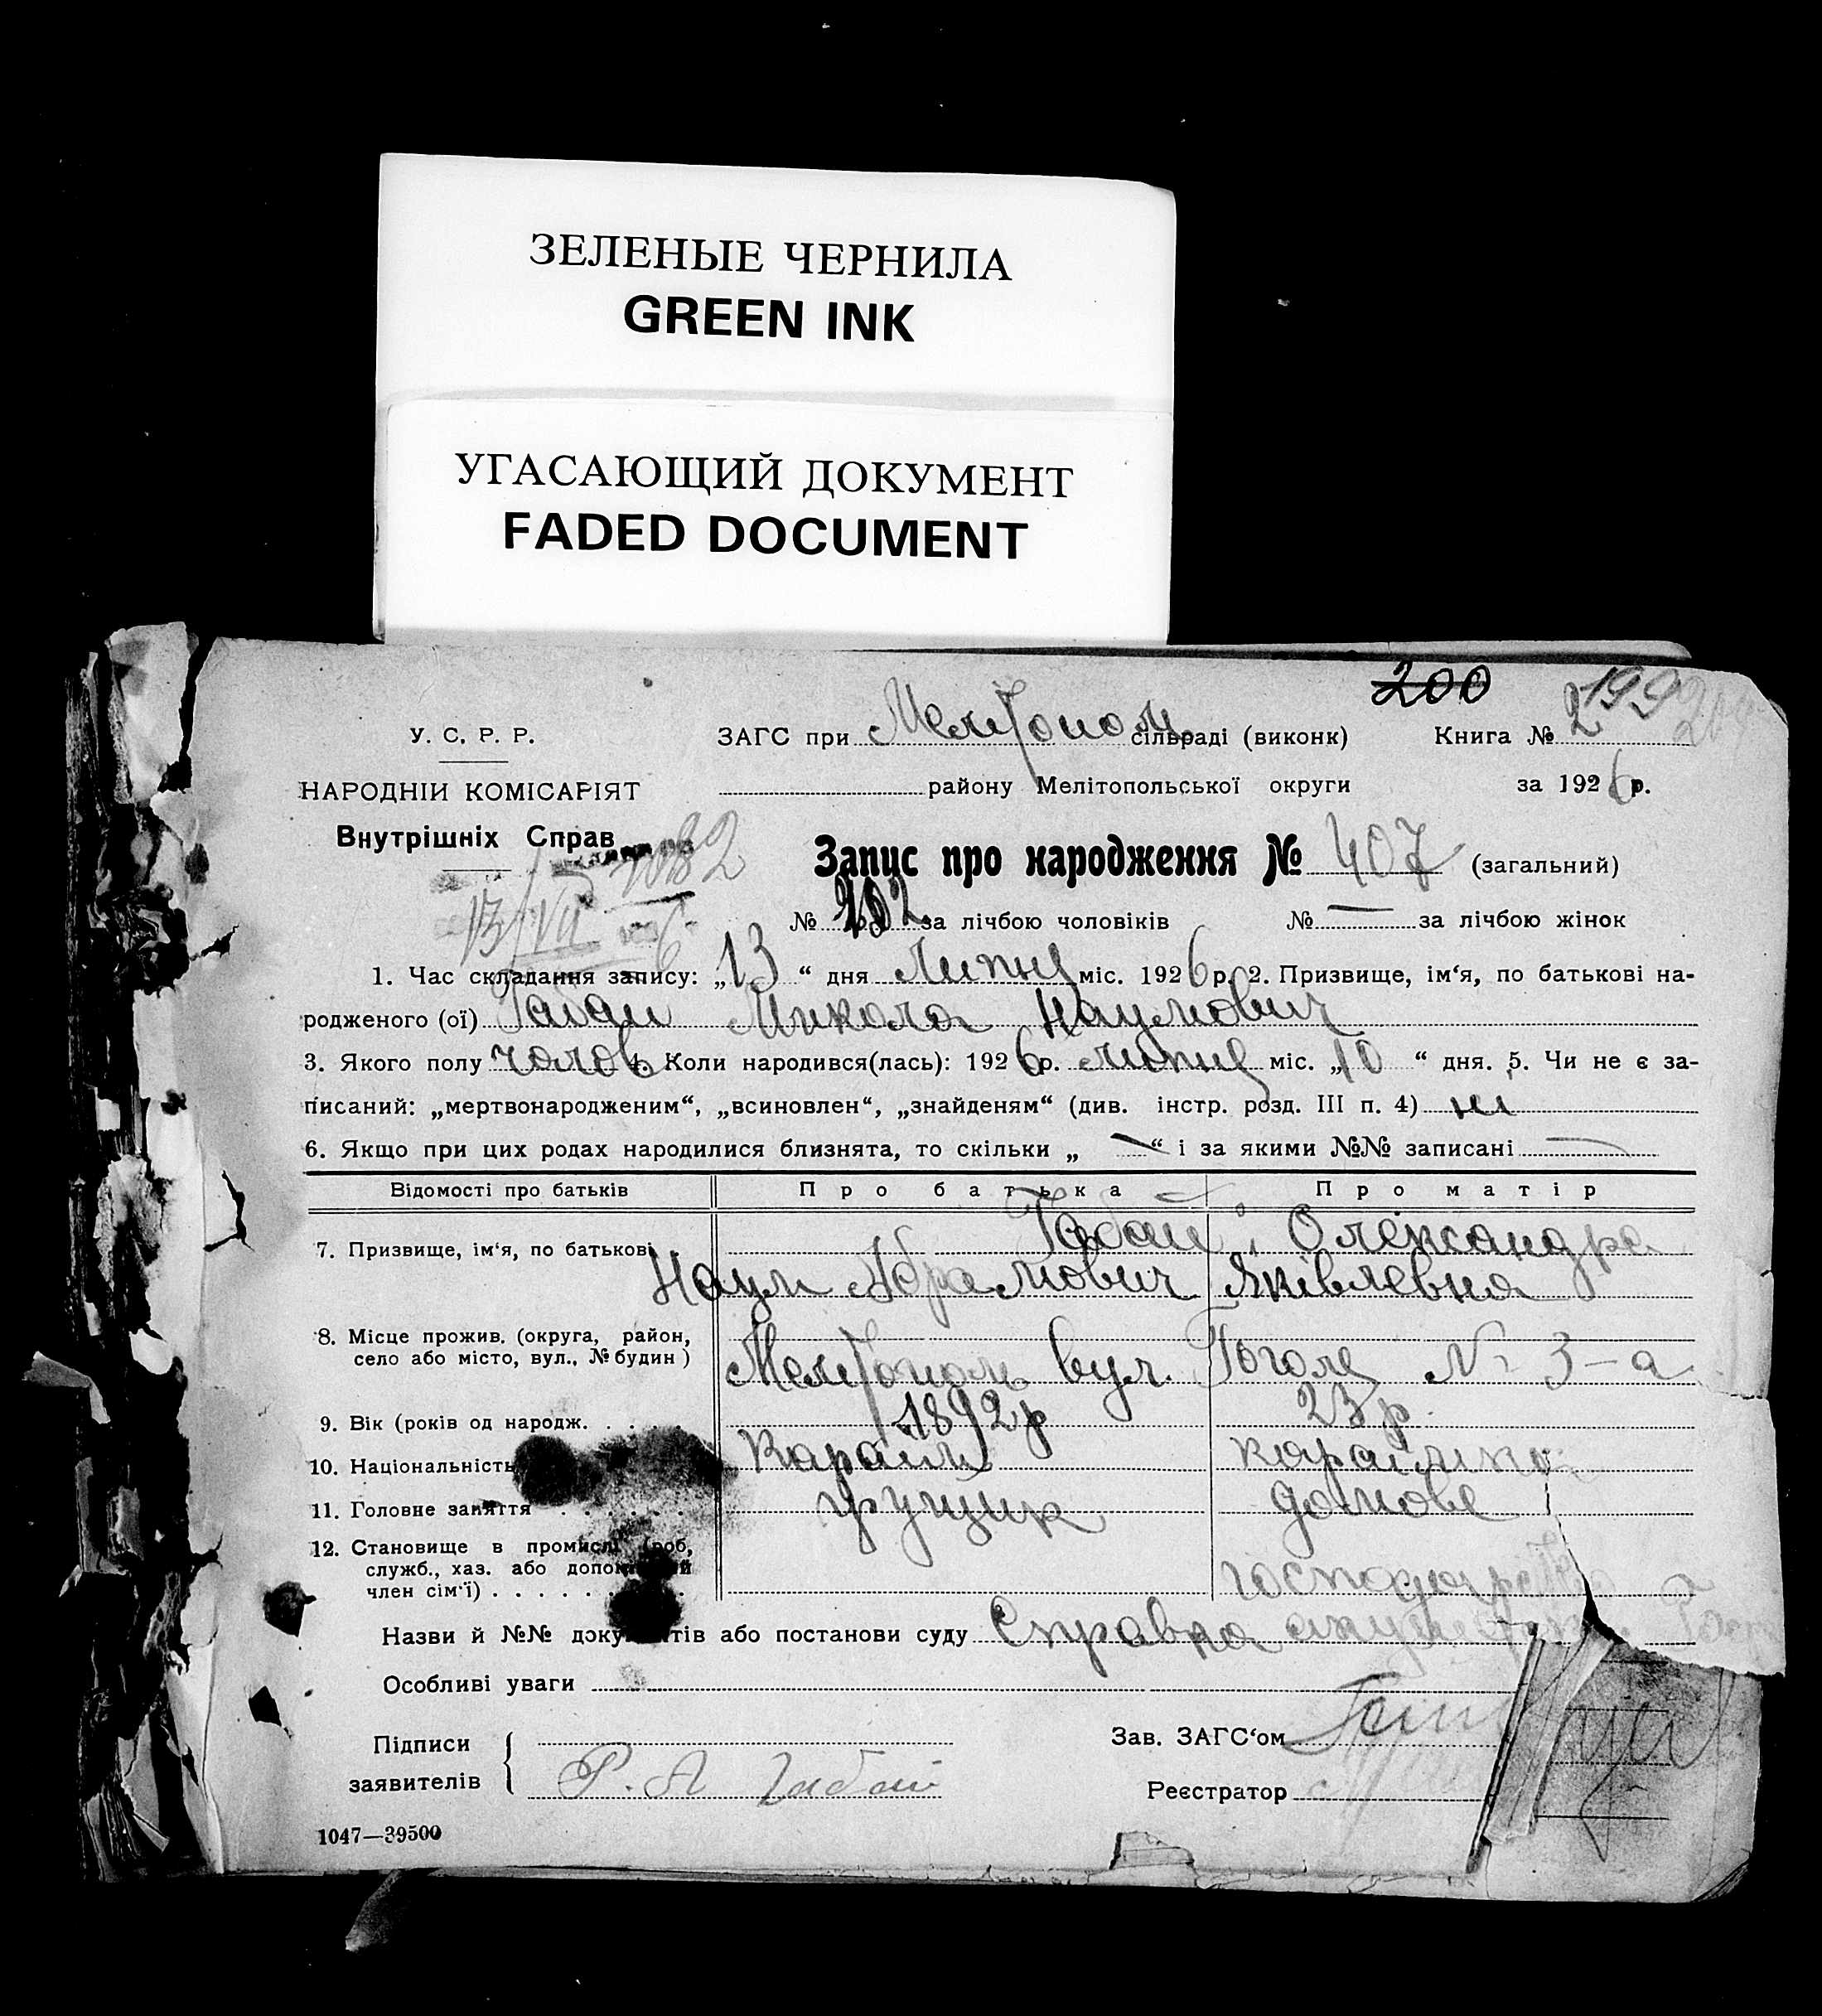 ЗЕЛЕНЫЕ ЧЕРНИЛА
GREEN INK
УГАСАЮЩИЙ ДОКУМЕНТ
FADED DOCUMENT
200 199
У. С. Р. Р. ЗАГС при Мелітополь сільраді (виконк) Книга № 2
НАРОДНІИ КОМІСАРІЯТ району Мелітопольської округи за 1926 р.
Внутрішніх Справ
Запис про народження № 407 (загальний)
13/VII
№ 202 за лічбою чоловіків № — за лічбою жінок
1. Час складання запису: „13“ дня Липня міс. 1926 р. 2. Призвище, ім‘я, по батькові на-
родженого (ої) Габай Микола Наумович
3. Якого полу чолов 4. Коли народився(лась): 1926 р. липня міс. „10“ дня. 5. Чи не є за-
писаний: „мертвонародженим“, „всиновлен“, „знайденям“ (див. інстр. розд. III п. 4) ні
6. Якщо при цих родах народилися близнята, то скільки „—“ і за якими №№ записані —
Відомості про батьків Про батька Про матір
7. Призвище, ім‘я, по батькові Габай Олександра
Наум Абрамович Яківлевна
8. Місце прожив. (округа, район,
село або місто, вул., № будин) Мелітополь вул. Гоголя № 3-а
9. Вік (років од народж. . . . . . 1892 р 23 р.
10. Національність Караїм караїмка
11. Головне заняття . . . . . . домове
12. Становище в промислі (роб,
служб., хаз. або допоміжний
член сім‘ї) . . . . . . . господарство
Назви й №№ документів або постанови суду Справка
Особливі уваги
Підписи Зав. ЗАГС‘ом
заявителів Р. А Габай Реєстратор
1047—39500